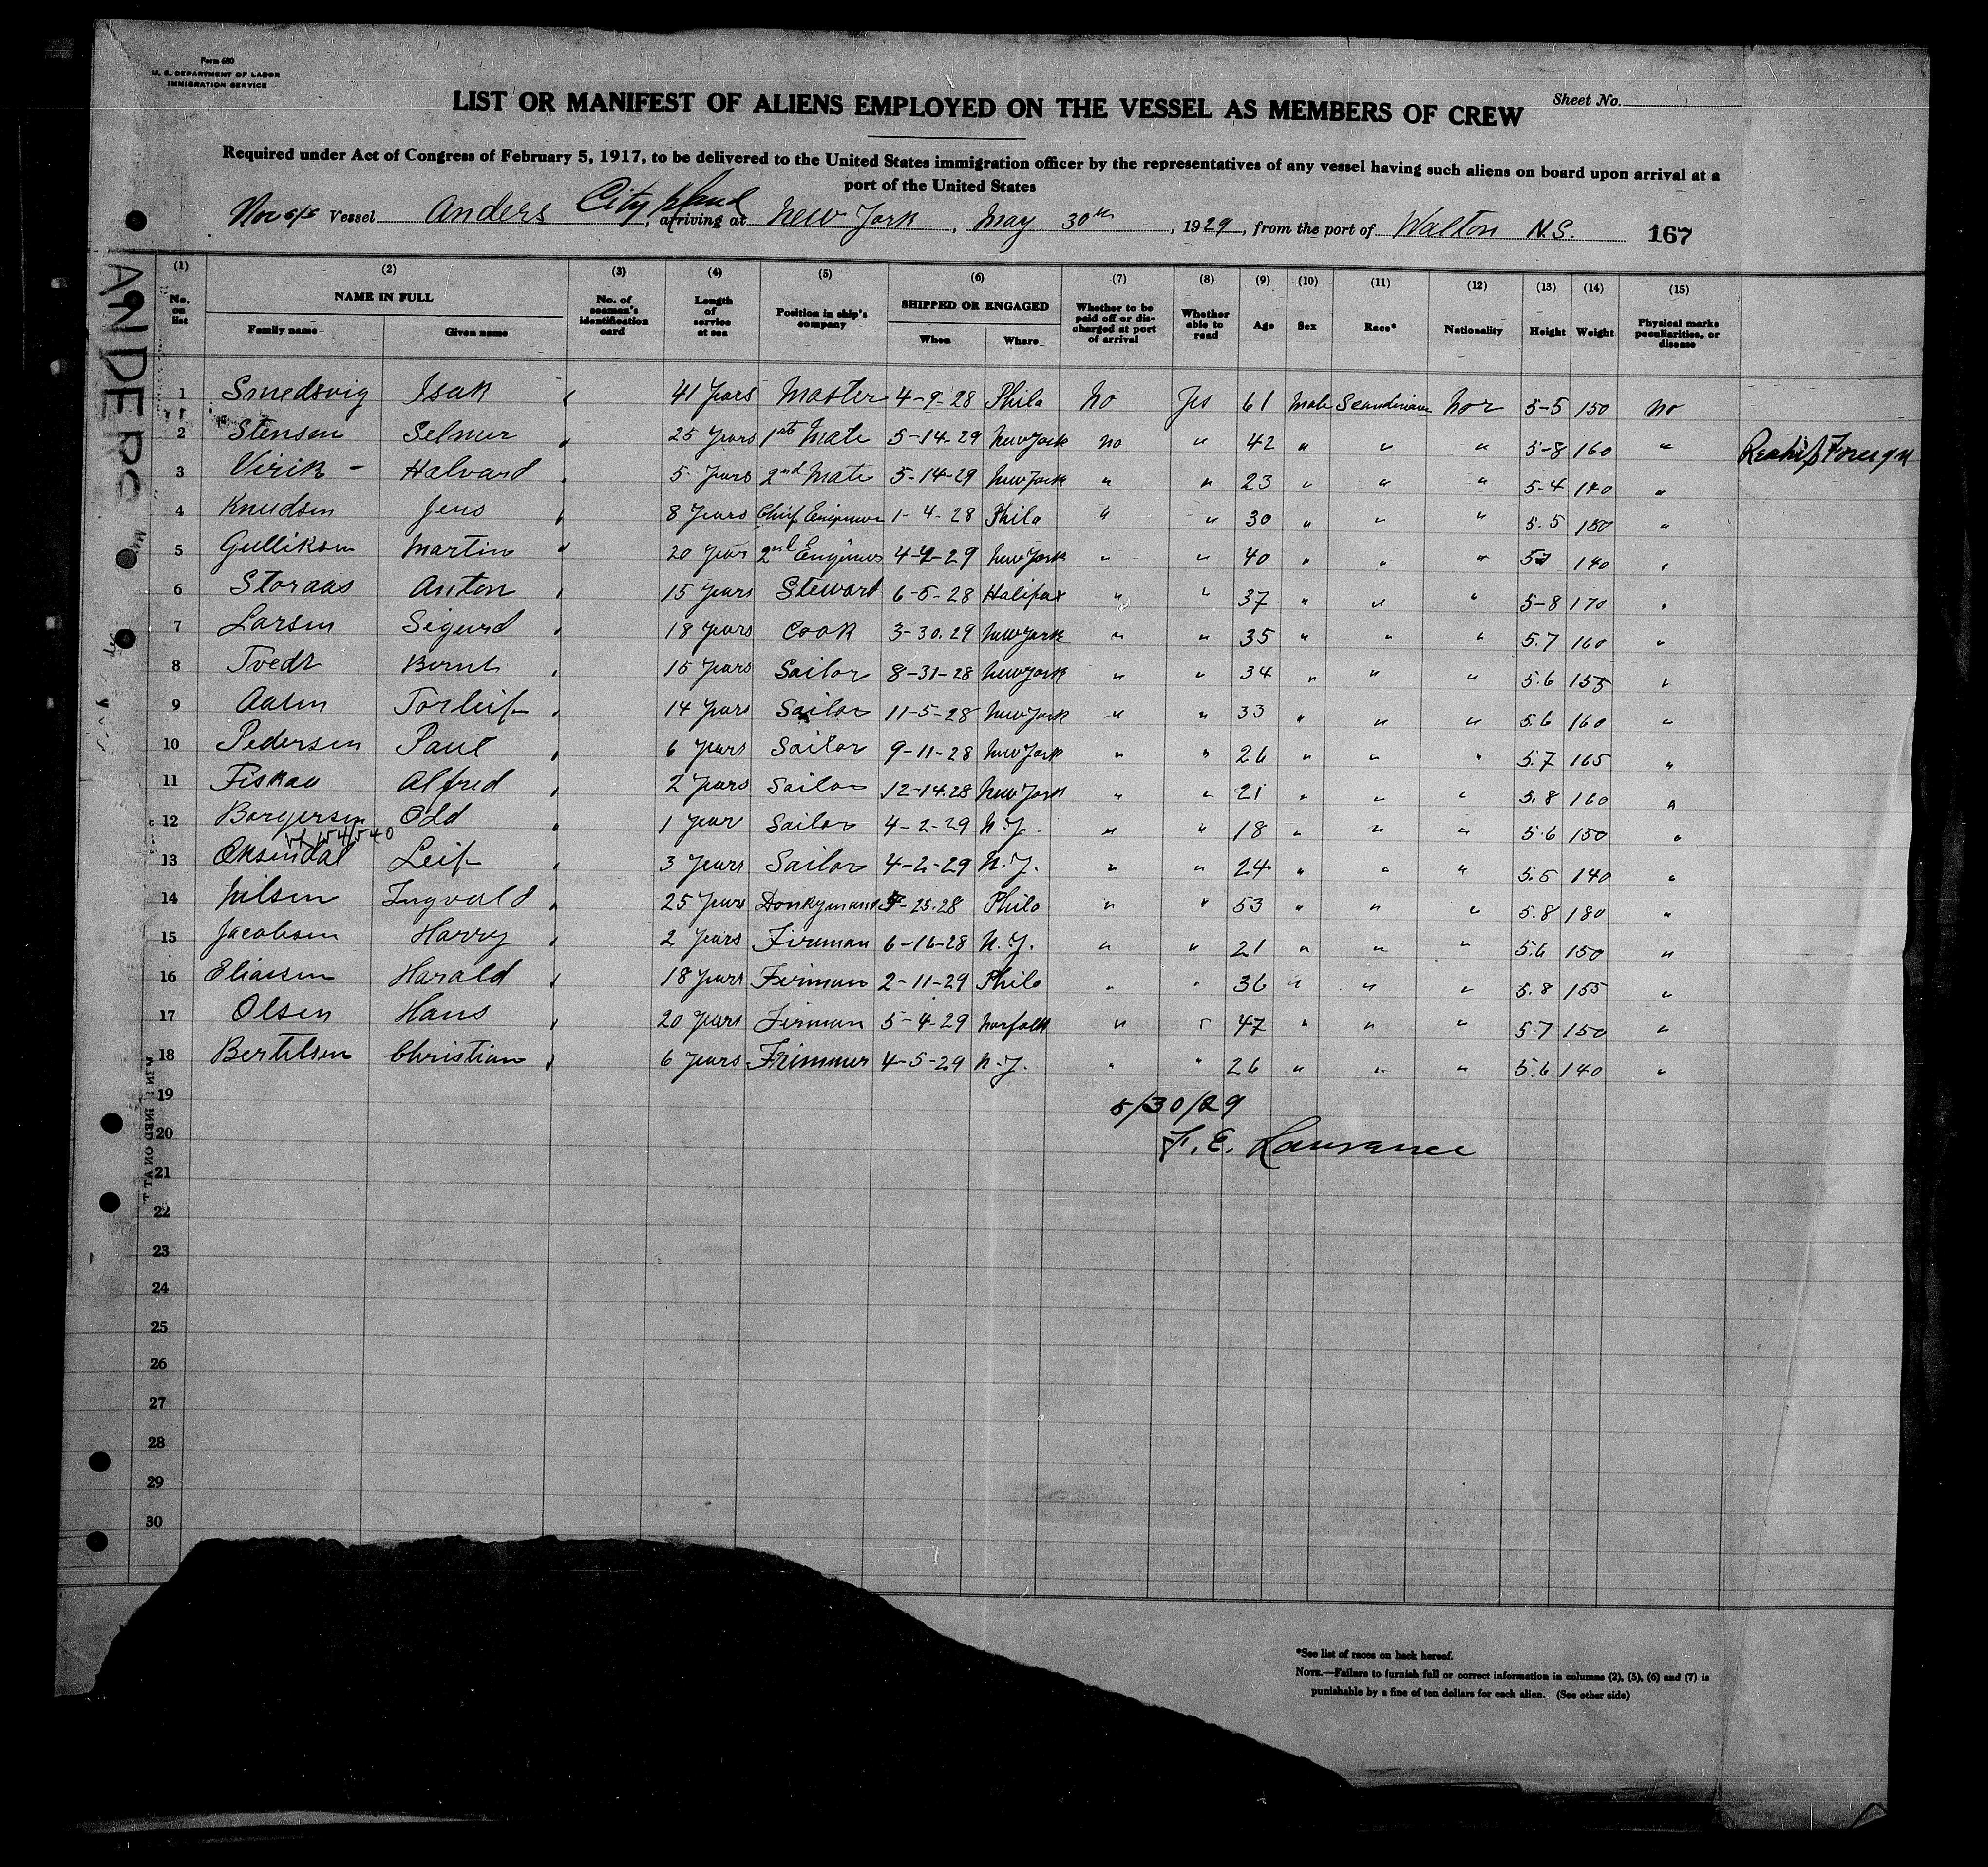 Form 680
U. S. DEPARTMENT OF LABOR
IMMIGRATION SERVICE
Sheet No.
LIST OR MANIFEST OF ALIENS EMPLOYED ON THE VESSEL AS MEMBERS OF CREW
Required under Act of Congress of February 5, 1917, to be delivered to the United States immigration officer by the representatives of any vessel having such aliens on board upon arrival at a
port of the United States
City Island
Nor s/s Vessel Anders, arriving at New York, May 30th, 1929, from the port of Walton N.S. 167
ANDERS
(1) (2) (3) (4) (5) (6) (7) (8) (9) (10) (11) (12) (13) (14) (15)
No. on list NAME IN FULL Family name Given name No. of seaman's identification card Length of service at sea Position in ship's company SHIPPED OR ENGAGED When Where Whether to be paid off or discharged at port of arrival Whether able to read Age Sex Race* Nationality Height Weight Physical marks peculiarities, or disease
1 Smedsvig Isak 41 Years Master 4-9-28 Phila No Yes 61 Male Scandinavian Nor 5-5 150 No
2 Stensen Selmer 25 Years 1st Mate 5-14-29 New York No " 42 " " " 5-8 160 " Reship Foreign
3 Virik - Halvard 5 Years 2nd Mate 5-14-29 New York " " 23 " " " 5-4 140 "
4 Knudsen Jens 8 Years Chief Engineer 1-4-28 Phila " " 30 " " " 5.5 150 "
5 Gulliksen Martin 20 Year 2nd Engineer 4-4-29 New York " " 40 " " " 57 140 "
6 Storaas Anton 15 Years Steward 6-5-28 Halifax " " 37 " " " 5-8 170 "
7 Larsen Sigurd 18 Years Cook 3-30.29 New York " " 35 " " " 5.7 160 "
8 Tvedt Bernt 15 Years Sailor 8-31-28 New York " " 34 " " " 5.6 155 "
9 Aalen Torleif 14 Years Sailor 11-5-28 New York " " 33 " " " 5.6 160 "
10 Pedersen Paul 6 Years Sailor 9-11-28 New York " " 26 " " " 5.7 165 "
11 Fiskaa Alfred 2 Years Sailor 12-14.28 New York " " 21 " " " 5.8 160 "
12 Borgersen Odd 1 Year Sailor 4-2-29 N.Y. " " 18 " " " 5.6 150 "
13 Oksendal Leif 3 Years Sailor 4-2-29 N.Y. " " 24 " " " 5.5 140 "
14 Nilsen Ingvald 25 Years Donkyman 25.28 Phila " " 53 " " " 5.8 180 "
15 Jacobsen Harry 2 Years Fireman 6-16-28 N.Y. " " 21 " " " 5.6 150 "
16 Eliassen Harald 18 Years Fireman 2-11-29 Phila " " 36 " " " 5.8 155 "
17 Olsen Hans 20 Years Fireman 5-4-29 Norfolk " " 47 " " " 5.7 150 "
18 Bertelsen Christian 6 Years Trimmer 4-5-29 N.Y. " " 26 " " " 5.6 140 "
19 5/30/29
20 F. E. Lawrance
21
22
23
24
25
26
27
28
29
30
*See list of races on back hereof.
NOTE.—Failure to furnish full or correct information in columns (2), (5), (6) and (7) is
punishable by a fine of ten dollars for each alien. (See other side)